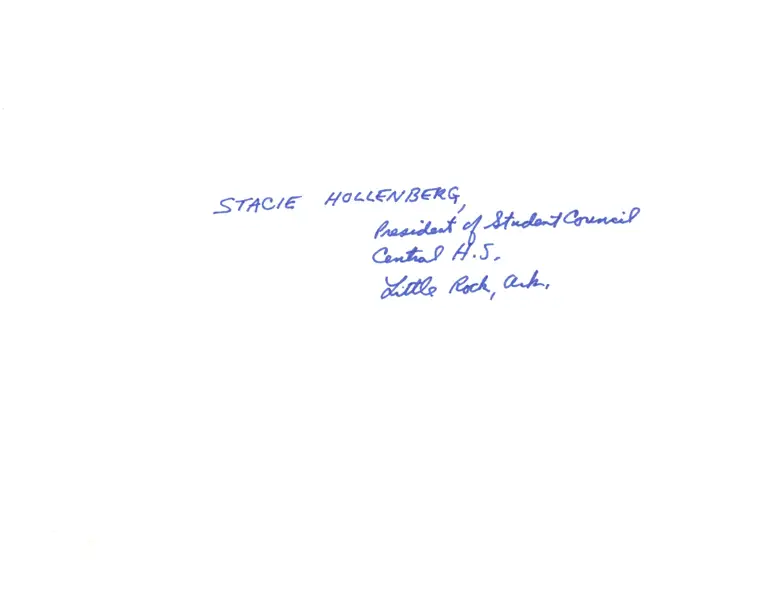 STACIE HOLLENBERG,
President of Student Council
Central H.S.
Little Rock, Ark.